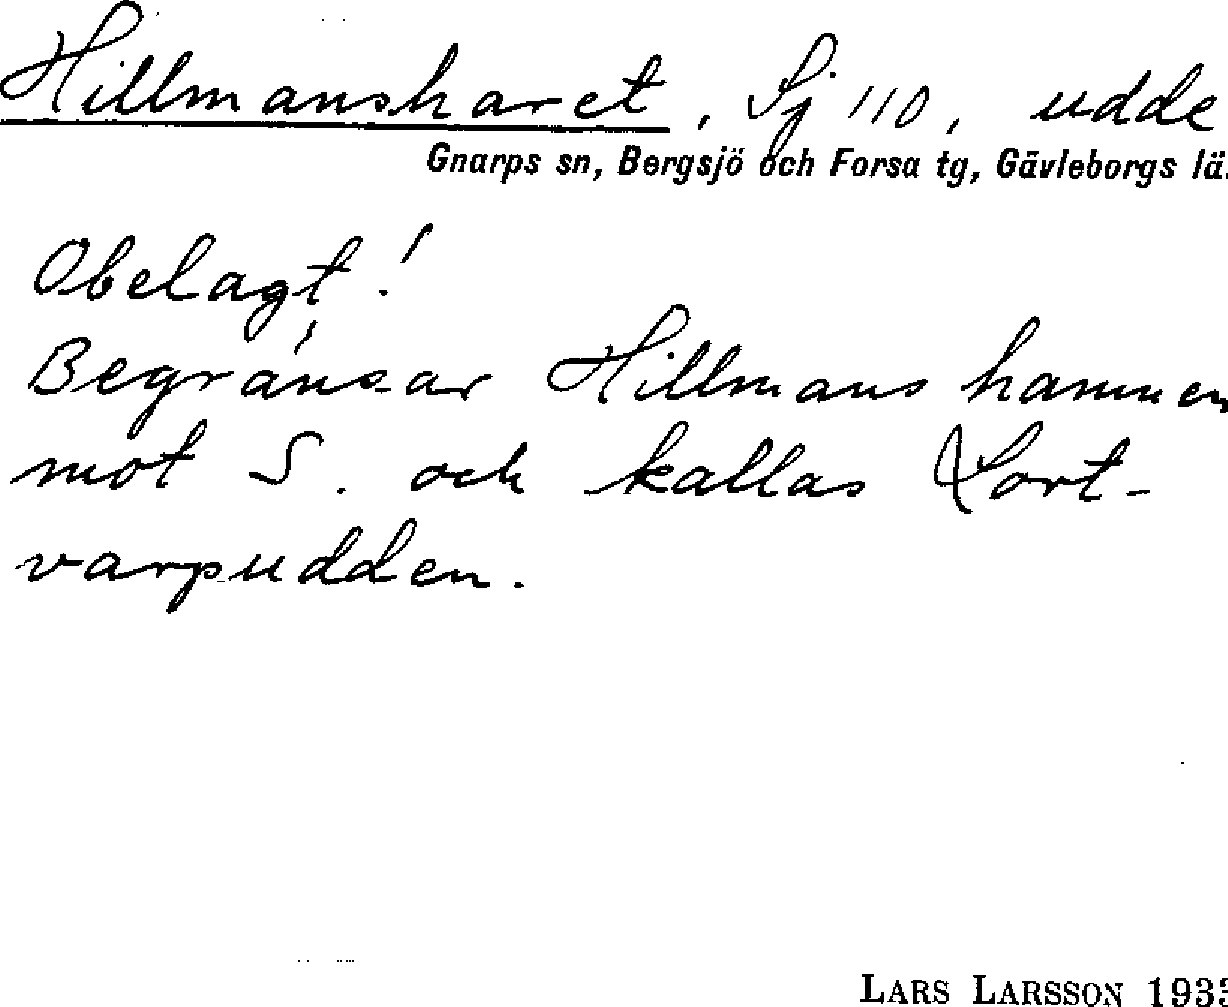 Hillmansharet, Sj 110, udde
Gnarps sn, Bergsjö och Forsa tg, Gävleborgs lä
Obelagt!
Begränsar Hillmanshamnen
mot S. och kallas Lort-
varpudden.
LARS LARSSON 193